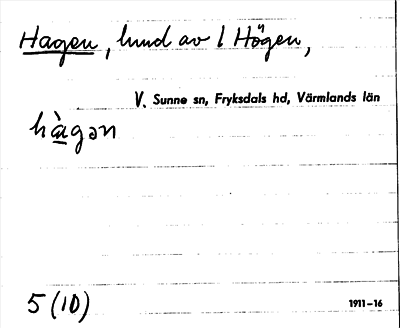 Hagen, lund av l Högen,
V. Sunne sn, Fryksdals hd, Värmlands län
hàgən
5 (10)
1911–16